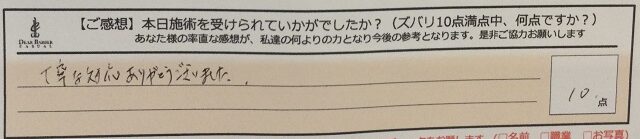 【ご感想】本日施術を受けられていかがでしたか？（ズバリ10点満点中、何点ですか？）
あなた様の率直な感想が、私達の何よりの力となり今後の参考となります。是非ご協力お願いします
DEAR BARBER
丁寧な対応ありがとうございました。
10点
をお願します（□名前 □職業 □お写真）